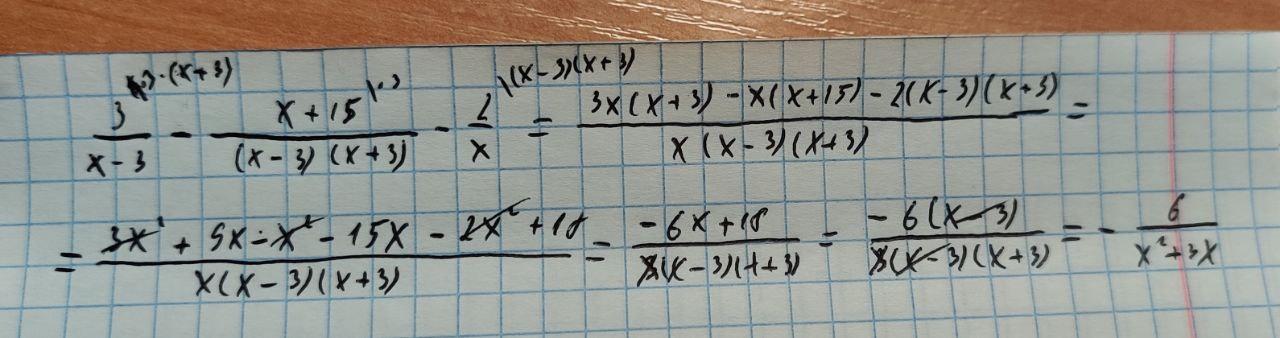 3/(x-3) \x·(x+3) - (x+15)/((x-3)(x+3)) \x - 2/x \(x-3)(x+3) = (3x(x+3) - x(x+15) - 2(x-3)(x+3))/(x(x-3)(x+3)) =
= (3x² + 9x - x² - 15x - 2x² + 18)/(x(x-3)(x+3)) = (-6x+18)/(x(x-3)(x+3)) = (-6(x-3))/(x(x-3)(x+3)) = - 6/(x²+3x)